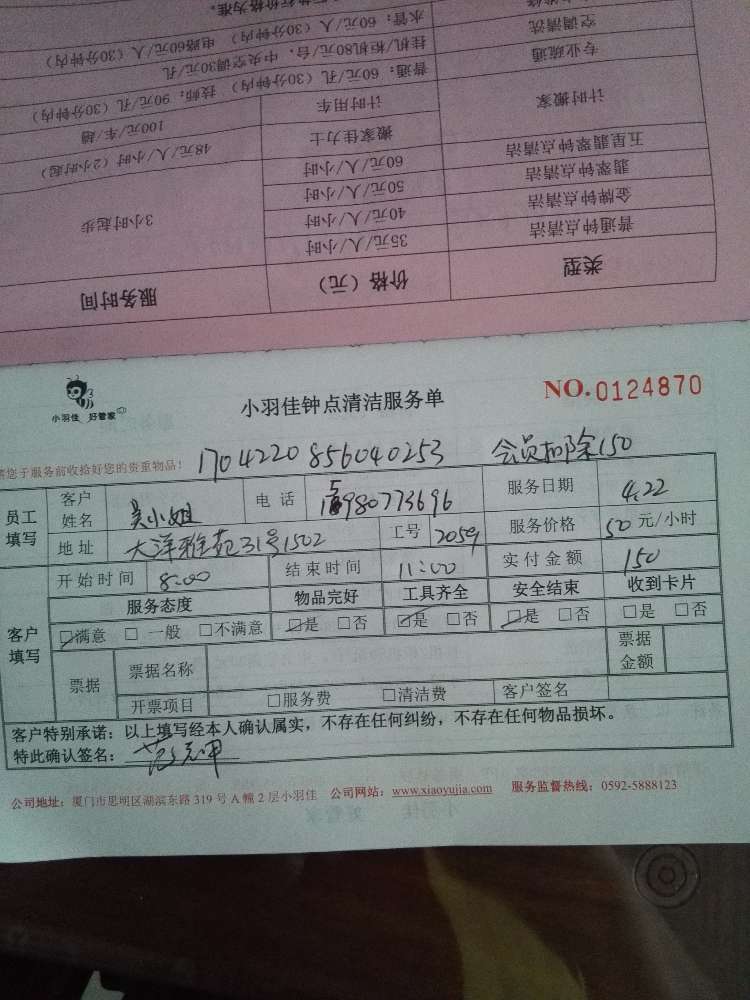 类型 价格（元） 服务时间
普通钟点清洁 35元/人/小时 3小时起步
金牌钟点清洁 40元/人/小时
翡翠钟点清洁 50元/人/小时
五星翡翠钟点清洁 60元/人/小时
计时搬家 搬家佳力士 48元/人/小时（2小时起）
计时用车 100元/车/趟
专业疏通 普通：60元/孔（30分钟内） 技师：90元/孔（30分钟内）
空调清洗 挂机/柜机80元/台，中央空调30元/孔
水管：60元/人（30分钟内） 电路60元/人（30分钟内）
小羽佳 好管家
小羽佳钟点清洁服务单
NO.0124870
请您于服务前收拾好您的贵重物品！
1704220856040253 会员扣除150
员工填写 客户姓名 吴小姐 电话 服务日期 4.22
地址 大洋雅苑31号1502 工号 2059 服务价格 50元/小时
客户填写 开始时间 8:00 结束时间 11:00 实付金额 150
服务态度 物品完好 工具齐全 安全结束 收到卡片
☑满意 □一般 □不满意 ☑是 □否 ☑是 □否 ☑是 □否 □是 □否
票据 票据名称 票据金额
开票项目 □服务费 □清洁费 客户签名
客户特别承诺：以上填写经本人确认属实，不存在任何纠纷，不存在任何物品损坏。
特此确认签名：
公司地址：厦门市思明区湖滨东路 319 号 A 幢 2 层小羽佳 公司网站：www.xiaoyujia.com 服务监督热线：0592-5888123